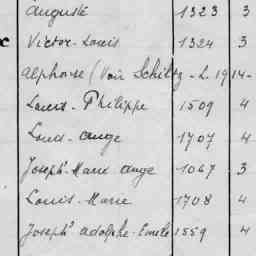 Auguste 1323 3
c Victor-Louis 1324 3
Alphonse (Voir Schiltz - L. 1914-
Louis-Philippe 1509 4
Louis-Ange 1707 4
Joseph-Marie Ange 1067 3
Louis-Marie 1708 4
Joseph Adolphe-Emile 1559 4